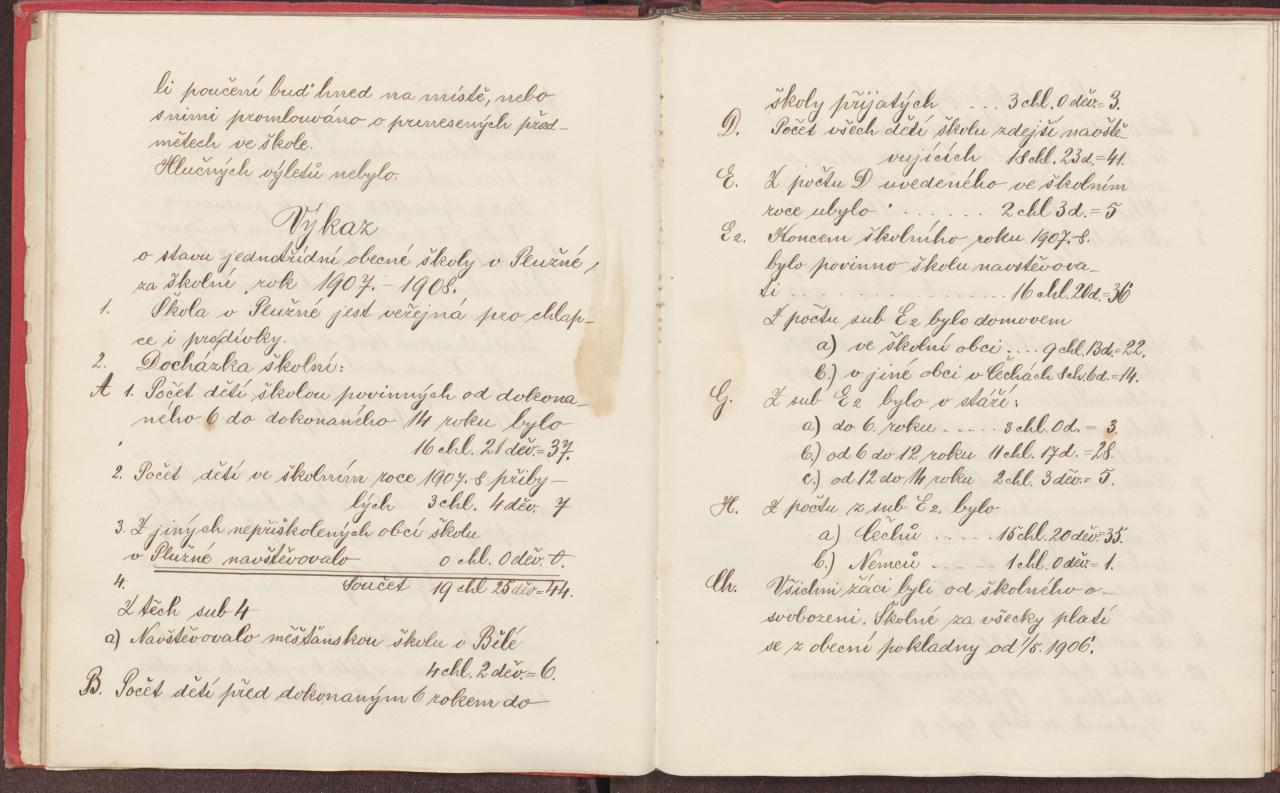 li poučení buď hned na místě, nebo
s nimi promlouváno o prinesených před-
mětech ve škole.
Hlučných výletů nebylo.
Výkaz
o stavu jednotřídní obecné školy v Plužné,
za školní rok 1907. – 1908.
1. Škola v Plužné jest veřejná pro chlap-
ce i pro dívky.
2. Docházka školní:
A 1. Počet dětí školou povinných od dokona-
ného 6 do dokonaného 14 roku bylo
16 chl. 21 děv. = 37.
2. Počet dětí ve školním roce 1907-8 přiby-
lých 3 chl. 4 děv. 7
3. Z jiných nepřiškolených obcí školu
v Plužné navštěvovalo 0 chl. 0 děv. 0.
4. Součet 19 chl 25 děv = 44.
Z těch sub 4
a) Navštěvovalo měšťanskou školu v Bělé
4 chl. 2 děv. = 6.
B. Počet dětí před dokonaným 6 rokem do
školy přijatých .... 3 chl. 0 děv. = 3.
D. Počet všech dětí školu zdejší navště-
vujících 18 chl. 23 d. = 41.
E. Z počtu D uvedeného ve školním
roce ubylo ....... 2 chl 3 d. = 5
E2. Koncem školního roku 1907.-8.
bylo povinno školu navstěvova-
ti ............ 16 chl. 20 d. = 36
Z počtu sub E2 bylo domovem
a) ve školní obci .... 9 chl. 13 d. = 22.
b.) v jiné obci v Čechách 8 ch. 6 d. = 14.
G. Z sub E2 bylo v stáří:
a) do 6. roku ..... 3 chl. 0 d. = 3.
b.) od 6 do 12 roku 11 chl. 17 d. = 28.
c.) od 12 do 14 roku 2 chl. 3 děv. = 5.
H. Z počtu z sub E2. bylo
a) Čechů ..... 15 chl. 20 děv. = 35.
b.) Nemců – – – – 1 chl. 0 děv. = 1.
Ch. Všichni žáci byli od školného o-
svobozeni. Školné za všecky platí
se z obecní pokladny od 1/5. 1906.